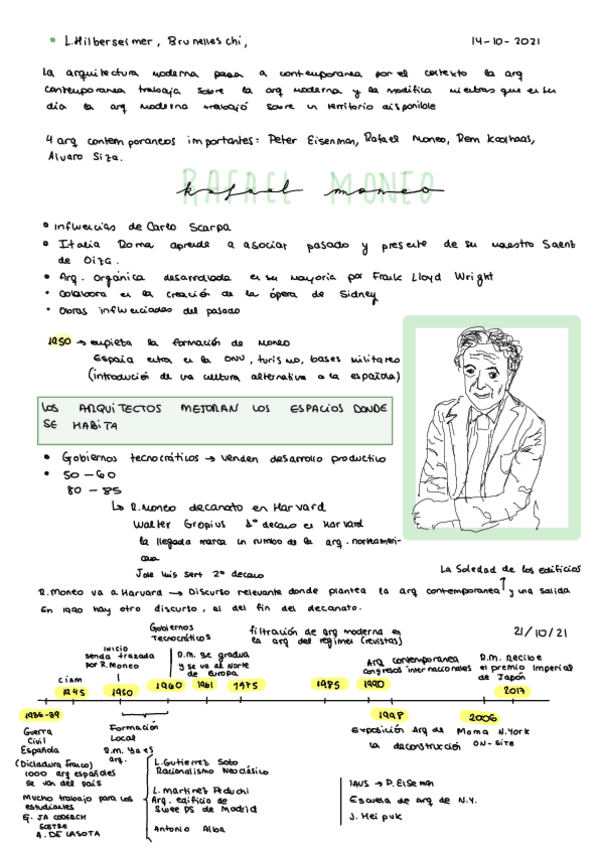 • L.Hilberseimer, Brunelleschi,
14-10-2021
La arquitectura moderna pasa a contemporanea por el contexto la arq
contemporanea trabaja sobre la arq moderna y la modifica mientras que en su
dia la arq moderna trabajó sobre un territorio disponible
4 arq contemporaneos importantes: Peter Eisenman, Rafael Moneo, Rem Koolhaas,
Alvaro Siza.
RAFAEL MONEO
rafael moneo
• Influencias de Carlo Scarpa
• Italia Roma aprende a asociar pasado y presente de su maestro Saenz
de Oiza.
• Arq. Orgánica desarrollada en su mayoría por Frank Lloyd Wright
• Colabora en la creación de la ópera de Sidney
• Obras influenciadas del pasado
1950 → empieza la formación de Moneo
España entra en la ONU, turismo, bases militares
(introdución de una cultura alternativa a la española)
LOS ARQUITECTOS MEJORAN LOS ESPACIOS DONDE
SE HABITA
• Gobiernos tecnocráticos → venden desarrollo productivo
• 50-60
80-85
↳ R.Moneo decanato en Harvard
Walter Gropius 1º decano en Harvard
la llegada marca un rumbo de la arq. norteameri-
cana
Jose luis sert 2º decano
La Soledad de los edificios
R.Moneo va a Harvard → Discurso relevante donde plantea la arq contemporanea ↑ y una salida
En 1990 hay otro discurso, el del fin del decanato.
21/10/21
Gobiernos
Tecnocráticos
filtración de arq moderna en
la arq del regimen (revistas)
inicio
senda trazada
por R.Moneo
R.M. se gradua
y se va al Norte
de Europa
Arq contemporanea
congresos internacionales
R.M. Recibe
el premio Imperial
de Japón
ciam
1945
1950
1960
1961
1975
1985
1990
2017
1936-39
1998
2006
Guerra
Civil
Española
(Dictadura Franco)
1000 arq españoles
se van del país
Mucho trabajo para los
estudiantes
G. JA CODERCH
SOSTRE
A. DE LA SOTA
Formación
Local
R.M. ya es
arq.
L.Gutierrez Soto
Racionalismo Neoclásico
L. Martinez Feduchi
Arq. edificio de
de Madrid
Antonio
Exposición Arq de Moma N.York
la deconstrucción
ON-SITE
IAUS → P. Eisenman
Escuela de arq de N.Y.